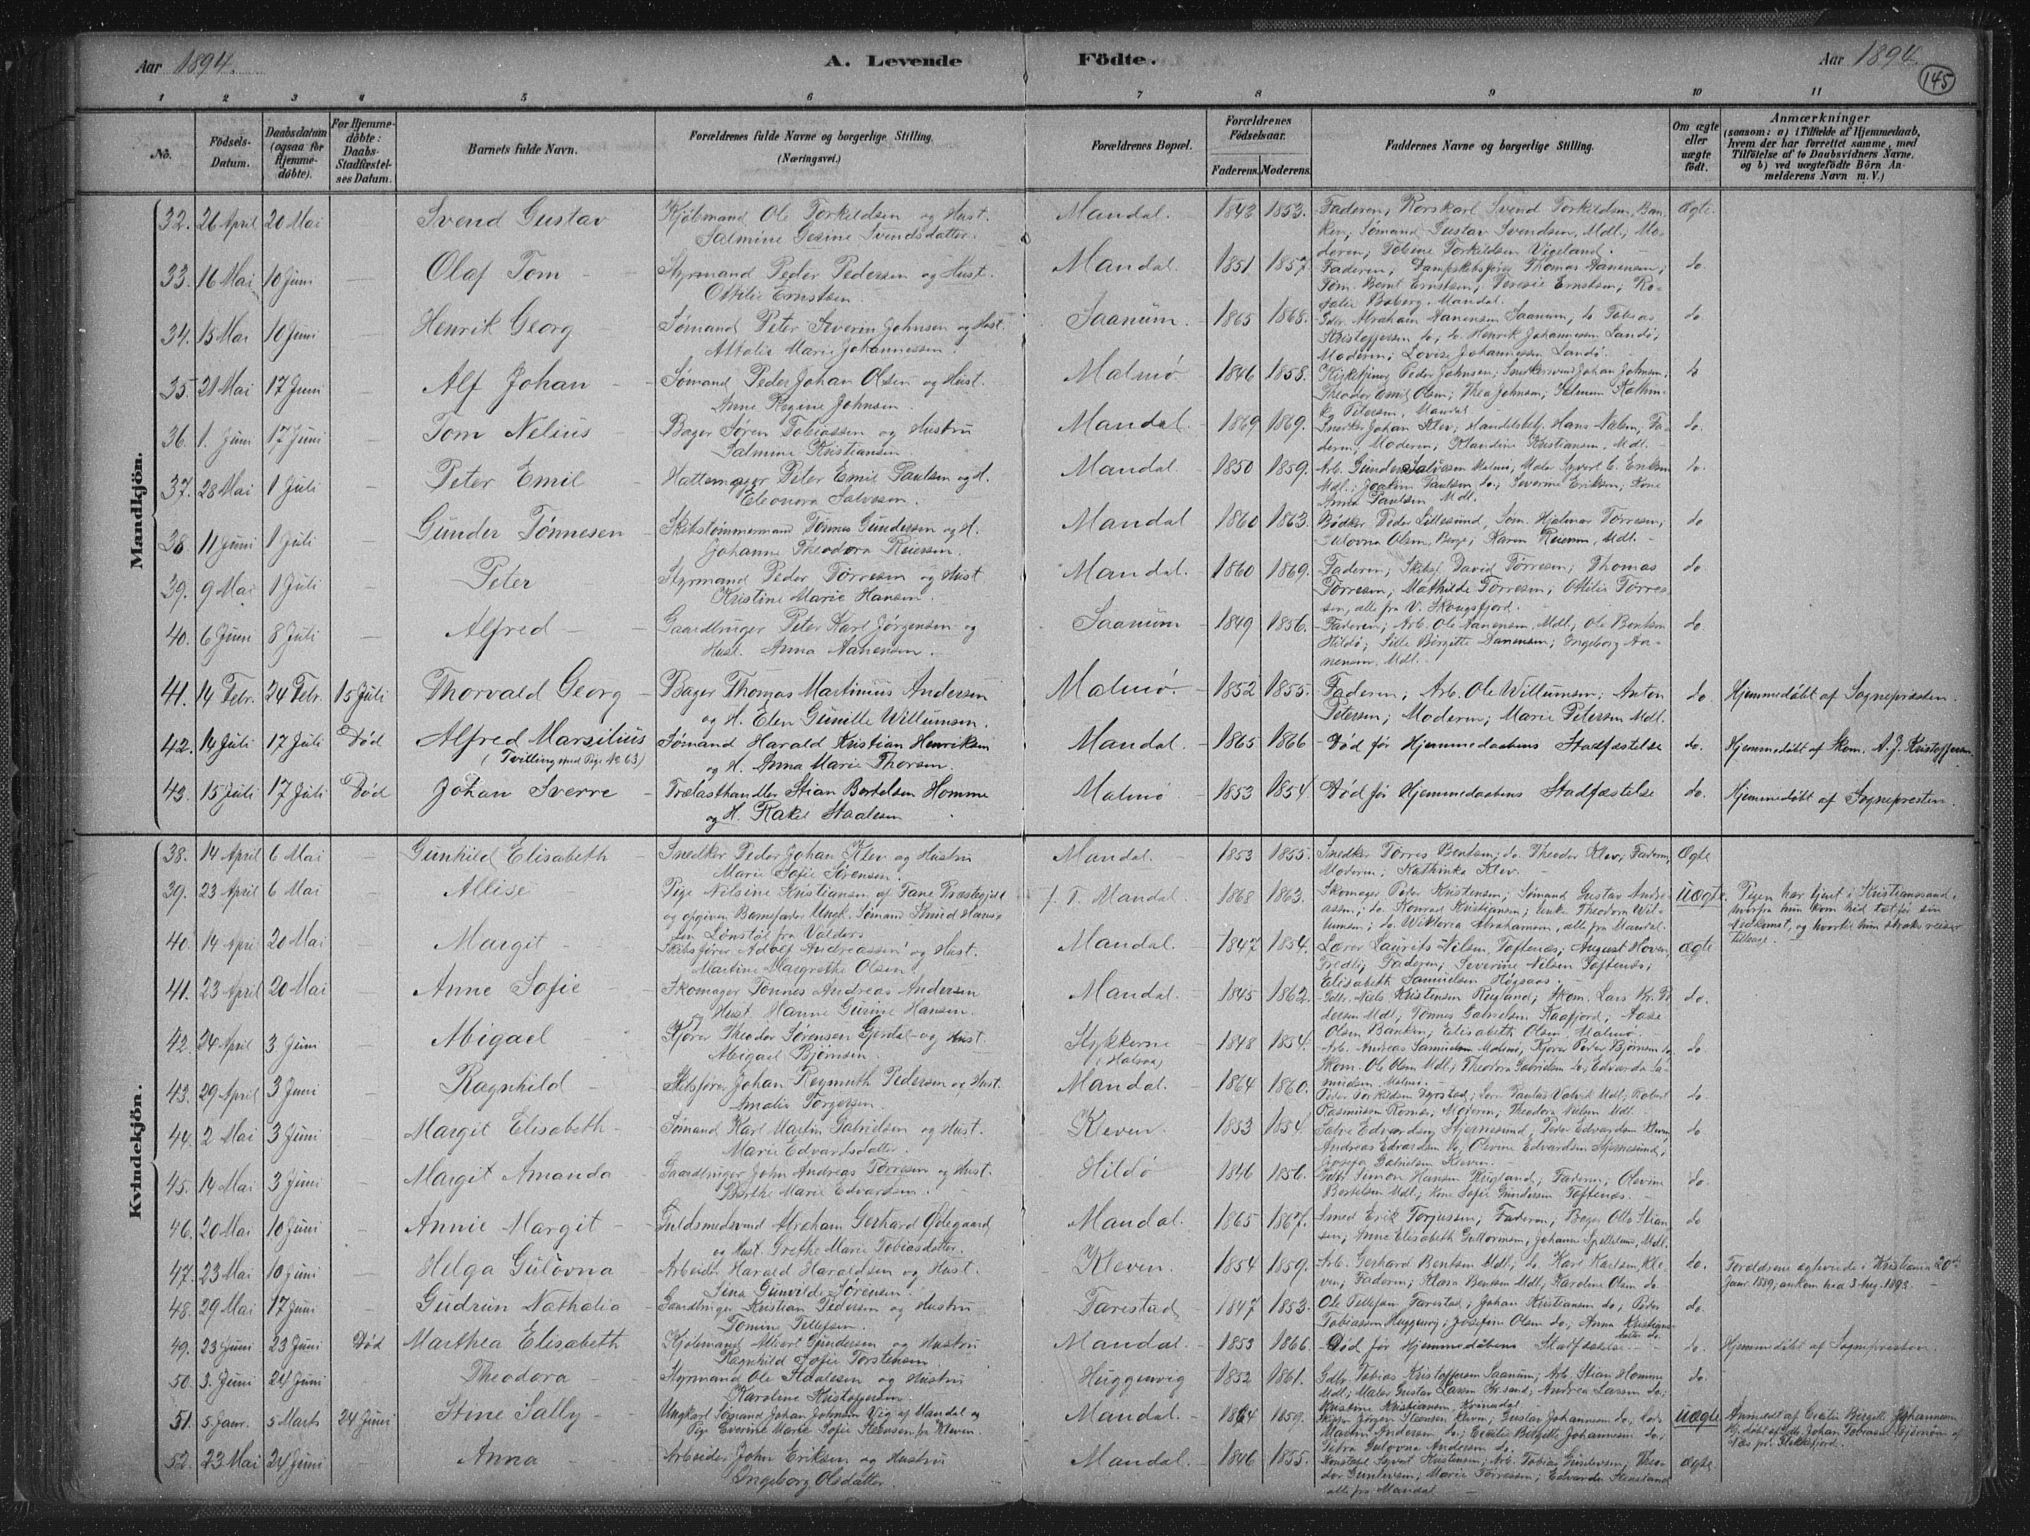 Aar 1894. A. Levende Födte. Aar 1894.
145
1 2 3 4 5 6 7 8 9 10 11
No. Födsels-Datum. Daabsdatum (ogsaa for Hjemme-döbte). For Hjemme-döbte: Daabs-Stadfæstel-ses Datum. Barnets fulde Navn. Forældrenes fulde Navne og borgerlige Stilling. (Næringsvei.) Forældrenes Bopæl. Forældrenes Födselsaar. Faderens. Moderens. Faddernes Navne og borgerlige Stilling. Om ægte eller uægte födt. Anmærkninger (saasom: a) i Tilfælde af Hjemmedaab, hvem der har forrettet samme, med Tilföielse af to Daabsvidners Navne, og b) ved uægtefödte Börn An-melderens Navn m. V.)
Mandkjön.
32. 26 April 20 Mai Svend Gustav Kjøbmand Ole Torkildsen og Hust. Mandal. 1843 1853. Faderen, Svend Torkildsen, Ægte.
Salmine Gesine Svendsdatter. Sømand Gustav Svendsen, Mdl.; Mo-
deren; Tobine Torkildsen Vigeland.
33. 16 Mai 10 Juni Olaf Tom Styrmand Peder Pedersen og Hust. Mandal. 1851 1857. Faderen; Thomas Danensen; do.
Ottilie Ernstsen Bernt Ernstsen; Teresie Ernstsen; Ro-
salie Boberg. Mandal.
34. 15 Mai 10 Juni Henrik Georg Sømand Peter Severin Johnsen og Hust. Saanum. 1865 1868. Abraham Danensen Saanum, do Tobias do.
Attalie Marie Johannessen. Kristoffersen do; do Henrik Johannessen Sandø;
Moderen; Lovise Johannessen Sandø.
35. 21 Mai 17 Juni Alf Johan Sømand Peder Johan Olsen og Hust. Malmø. 1846 1858. Peder Johnsen; Johan Johnsen;
Anne Regine Johnsen. Theodor Emil Olsen; Thea Johnsen;
Petersen, Mandal.
36. 1. Juni 17 Juni Tom Nilsius Bager Søren Tobiassen og Hustru Mandal 1869 1869. Snedker Johan Klev; Hans Nilsen; Fa- do.
Salmine Kristiansen deren, Moderen; Klandine Kristiansen, Mdl.
37. 28 Mai 1 Juli Peter Emil Hattemager Peter Emil Paulsen og H. Mandal. 1850 1859. Arb. Gunder Salvesen Malmø; Maler Syvert C. Eriksen do.
Eleonora Salvesen. Mdl.; Joakim Paulsen do; Severine Eriksen; Kone
Anna Paulsen Mdl.
38 11 Juni 1 Juli Gunder Tønnesen Skibstømmermand Tønnes Gundersen og H. Mandal 1860 1863. Bødker Peder Sillesund, Søm. Hjalmar Tørresen; do
Johanne Theodora Reiersen. Gulovna Olsen, Berge; Karen Reiersen, Mdl.
39. 9 Mai 1 Juli Peter Styrmand Peder Tørresen og Hust. Mandal. 1860 1869. Faderen; Skibsf. David Tørresen; Thomas do
Kristine Marie Hansen. Tørresen; Mathilde Tørresen; Ottilie Tørre-
sen, alle fra V. Skougsfjord.
40. 6 Juni 8 Juli Alfred Gaardbruger Peter Karl Jørgensen og Saanum 1849 1856. Faderen; Arb. Ole Aanensen Mdl.; Ole Bentsen do.
Hust. Anna Aanensen. Hildø; Sille Birgitte Danensen; Ingeborg Aa-
nensen, Mdl.
41. 14 Febr. 24 Febr. 15 Juli Thorvald Georg Bager Thomas Martinius Andersen Malmø. 1852 1855. Faderen; Arb. Ole Willumsen; Anton do. Hjemmedøbt af Sognepræsten.
og H. Elen Gunille Willumsen. Petersen; Moderen; Marie Petersen Mdl.
42. 14 Juli 17 Juli Død Alfred Marsilius Sømand Harald Kristian Henriksen Mandal. 1865 1866 Død før Hjemmedaabens Stadfæstelse do. Hjemmedøbt af Skom. A. J. Kristoffersen
(Tvilling med Pige No 63) og H. Anna Marie Thorsen.
43. 15 Juli 17 Juli Død Johan Sverre Trælasthandler Stian Bertelsen Homme Malmø 1853 1854 Død før Hjemmedaabens Stadfæstelse do. Hjemmedøbt af Sognepresten.
og H. Rakel Staalesen
Kvindekjön.
38. 14 April 6 Mai Gunhild Elisabeth Snedker Peder Johan Klev og Hustru Mandal. 1853 1855. Snedker Tørres Bentsen; do. Theodor Klev; Faderen, Ægte
Marie Sofie Sørensen. Moderen; Kathinka Klev.
39. 23 April 6 Mai Allise Pige Nilsine Kristiansen af Fane Præstegjeld f. T. Mandal. 1868 1863. Skomager Peter Kristensen; Sømand Gustav Andre- uægte. Pigen har tjent i Kristianssand,
og opgiven Barnefader Ungk. Sømand Knud Hans- assen; do. Konrad Kristiansen; Enke Theodora Wil- hvorfra hun kom hid tæt før sin
sen Lønstøl fra Valders. lumsen; do Wiktoria Abrahamsen, alle fra Mandal. Nedkomst, og hvortil hun straks reiser
40. 14 April 20 Mai Margit Skibsfører Adolf Andreassen og Hust. Mandal. 1847 1854. Lærer Laurits Nilsen, Toftenæs; August Hoven ægte tilbage.
Martine Margrethe Olsen. Fredli; Faderen; Severine Nilsen Toftenæs;
Elisabeth Samuelsen Høgsaas.
41. 23 April 20 Mai Anne Sofie Skomager Tønnes Andreas Andersen Mandal. 1845 1862. Gdbr. Niels Kristensen Reigland; Skom. Lars Kr. Pe- do.
Hust. Hanne Gurine Hansen. dersen Mdl; Tønnes Gabrielsen Kaafjord; Aase
Olsen Banken; Elisabeth Olsen Malmø.
42. 24 April 3 Juni Abigael Kjører Theodor Sørensen Gjerdal og Hust. Stykkerne 1848 1854. Arb. Andreas Samuelsen Malmø; Kjører Peder Bjørnsen do do.
Abigael Bjørnsen. (Halsaa) Skom. Ole Olsen Mdl.; Theodora Gabrielsen do; Edvarda Sa-
muelsen Malmø.
43. 29 April 3 Juni Ragnhild Skibsfører Johan Reymuth Pedersen og Hust. Mandal. 1864 1860. Peder Torkildsen Dyrstad; Mdl; Robert do
Amalie Torgersen. Rasmussen; Moderen; Theodora Nielsen Mdl.
44. 2 Mai 3 Juni Margit Elisabeth Sømand Karl Martin Gabrielsen og Hust. Kleven. 1853 1854 Salve Edvardsen Stjernesund; Peder Edvardsen Kleven; do
Marie Edvardsdatter. Andreas Edvardsen do; Olevine Edvardsen Stjernesund;
Josefa Gabrielsen Kleven.
45. 14 Mai 3 Juni Margit Amanda Gaardbruger John Andreas Tørresen og Hust. Hildø 1846 1856. Gdbr Simon Hansen Reigland; Faderen; Olevine do.
Berthe Marie Edvardsen. Bertelsen Mdl; Kone Sofie Gundersen Toftenæs.
46. 20 Mai 10 Juni Annie Margit Guldsmedsvend Abraham Gerhard Ødegaard, Mandal. 1865 1867. Smed Erik Torjussen; Faderen; Bager Otto Stian- do
og Hust. Grethe Marie Tobiasdatter. sen; Anne Elisabeth Guttormsen; Johanne Spettelund, Mdl.
47. 23 Mai 10 Juni Helga Gulovna Arbeider Harald Haraldsen og Hust. Kleven. 1854 1859. Arb. Gerhard Bentsen Mdl; do. Karl Karlsen, Kle- do. Forældrene ægteviede i Kristiania 20de
Sina Gunvalde Sørensen. ven; Faderen; Klara Bentsen Mdl; Karoline Olsen do. Janr. 1889; ankom hid 3 Aug. 1893.
48. 29 Mai 17 Juni Gudrun Nathalia Gaardbruger Kristian Pedersen og Hustru Farestad 1847 1853. Ole Tellefsen Farestad; Johan Kristiansen do; Peder do.
Tomine Tellefsen. Tobiassen Huggenvig; Josefine Olsen do; Anna Kristians-
datter do.
49. 23 Juni 23 Juni Død Marthea Elisabeth Kjøbmand Albert Gundersen og Hustru Mandal 1853 1866. Død før Hjemmedøbens Stadfæstelse. do. Hjemmedøbt af Sognepresten.
Ragnhild Sofie Torstensen.
50. 3. Juni 24 Juni Theodora Styrmand Ole Staalesen og Hustru Huggenvig 1852 1861. Gdbr Tobias Kristoffersen Saanum; Arb. Stian Homme do.
Karoline Kristoffersen. Mdl; Maler Gustav Larsen Kr.sand; Andrea Larsen do;
Kristine Kristiansen
51. 5 Janr. 5 Marts 24 Juni Stine Sally Ungkarl Sømand Johan Johnsen Vig af Mandal og Mandal. 1864 1859. Skipper Jørgen Steensen Klevn; Gustav Johannesen do; uægte Anmeldt af Cecilie Birgitte Johannesen
Pige Everine Marie Sofie Steensen fra Kleven. Martin Andersen do; Cecilie Birgitte Johannesen do; Hj. døbt af Gdb. Johan Tobiassen
Petra Gulovna Andersen do. Næs pr. Flekkefjord.
52. 23 Mai 24 Juni Anna Arbeider John Eriksen og Hustru Mandal 1846 1855. Konstabel Syvert Kristensen; Arb. Tobias Gundersen; Theo- ægte.
Ingeborg Olsdatter. dor Gundersen; Marie Tørresen; Edvarda
alle fra Mandal